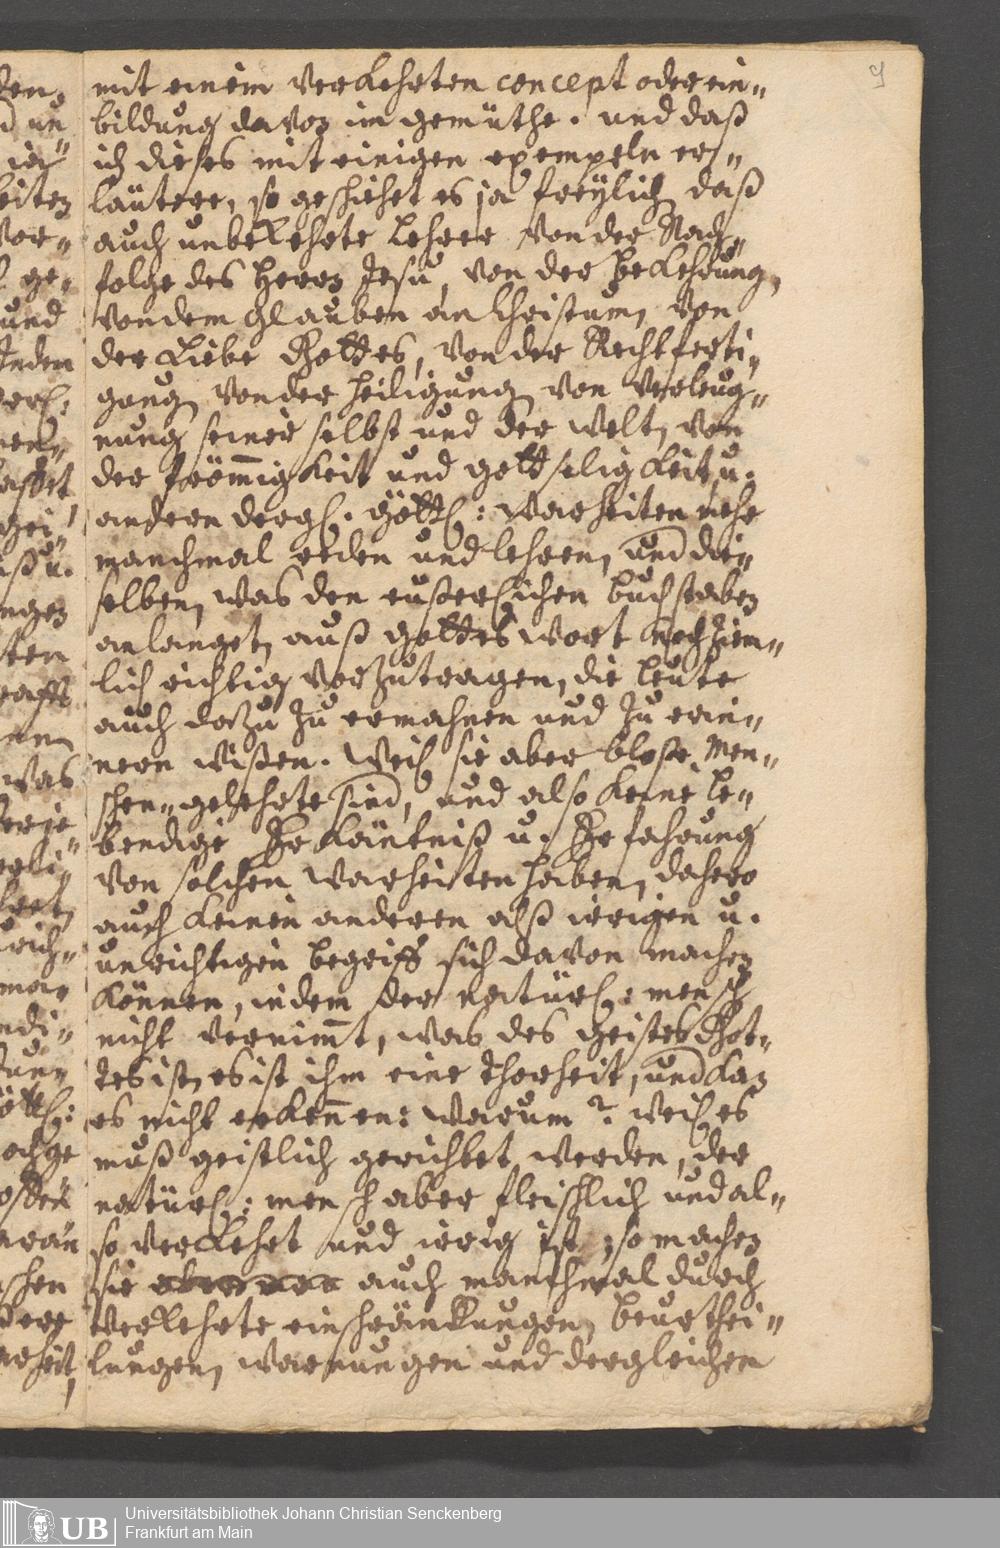 9
mit einem verkehrten concept oder ein-
bildung davon im gemüthe. und daß
ich dieses mit einigen exempeln er-
läutere, so geschiehet es ja freÿlich, daß
auch unbekehrte Lehrer von der Nach-
folge des Herrn Jesu, von der Bekehrung,
von dem Glauben an Christum, von
der Liebe Gottes, von der Rechtferti-
gung, von der heiligung, von verleug-
nung seiner selbst und der welt, von
der frömmigkeit und gottseligkeit, u.
andern dergl. göttl: warheiten mehr
manchmal reden und lehren, und die-
selben, was den eußerlichen buchstaben
anlanget, auß Gottes wort noch ziem-
lich richtig vorzutragen, die Leute
auch dazu zu ermahnen und zu erin-
nern wißen. Weil sie aber bloße Men-
schen-gelehrte sind, und also keine le-
bendige Erkäntniß u. Erfahrung
von solchen warheiten haben, dahero
auch keinen anderen alß irrigen u.
unrichtigen begriff sich davon machen
können, indem der natürl: mensch
nicht vernimt, was des geistes Got-
tes ist, es ist ihm eine thorheit, und kan
es nicht erkennen: warum? weil es
muß geistlich gerichtet werden, der
natürl: mensch aber fleischlich und al-
so verkehrt und irrig ist; so machen
sie auch manchmal durch
verkehrte einschränkungen, beurthei-
lungen, warnungen und dergleichen
UB
Universitätsbibliothek Johann Christian Senckenberg
Frankfurt am Main